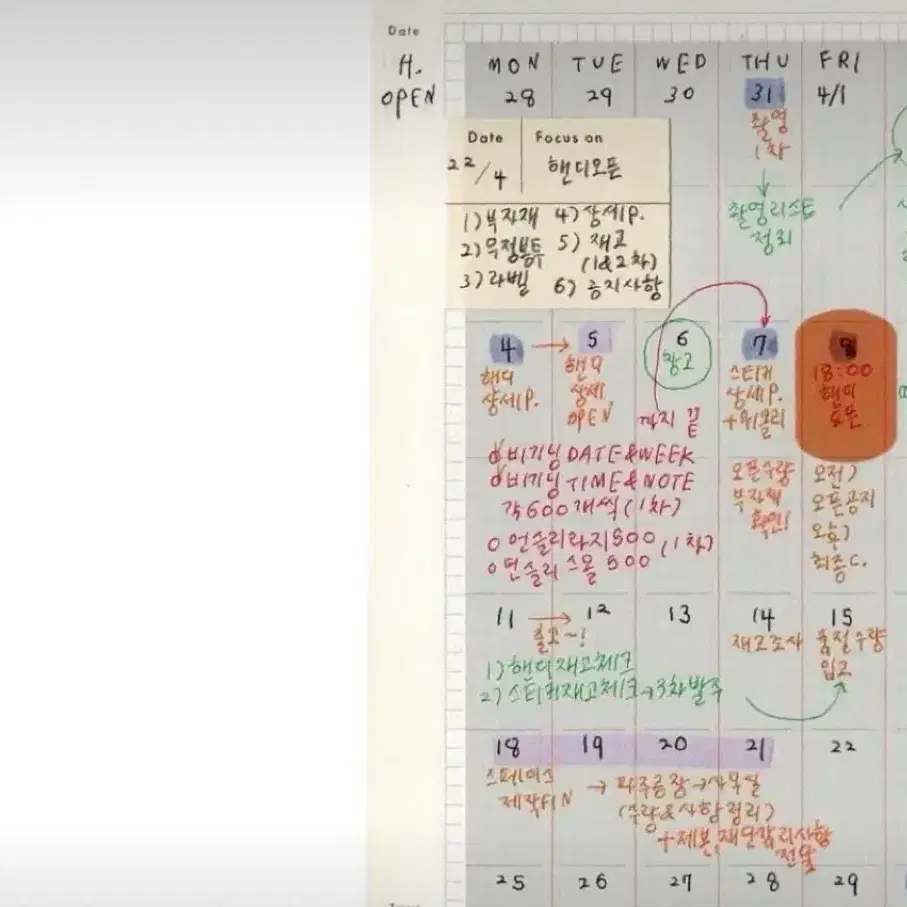 Date
H.
OPEN
MON TUE WED THU FRI
28 29 30 31 4/1
촬영
1차
촬영리스트
정리
Date Focus on
22/4 핸디오픈
1) 부자재 4) 상세P.
2) 무정봉투 5) 재고
(1&2차)
3) 라벨 6) 공지사항
4 → 5 6 7 8
핸디
상세P.
핸디
상세
OPEN
창고
까지 끝
스티커
상세P.
+위클리
18:00
핸디
오픈
비기닝 DATE&WEEK
비기닝 TIME&NOTE
각 600개씩 (1차)
언슬리라지 500 (1차)
언슬리 스몰 500
오픈수량
부자재
확인!
오전)
오픈공지
오후)
최종C.
11 → 12 13 14 15
출고~!
1) 핸디재고체크
2) 스티커재고체크→3차발주
재고조사
품절수량
입고
18 19 20 21 22
스페이스
제작FIN
→ 파주공장→사무실
(수량&사항정리)
+제본,재단,갈리사항
전달
25 26 27 28 29